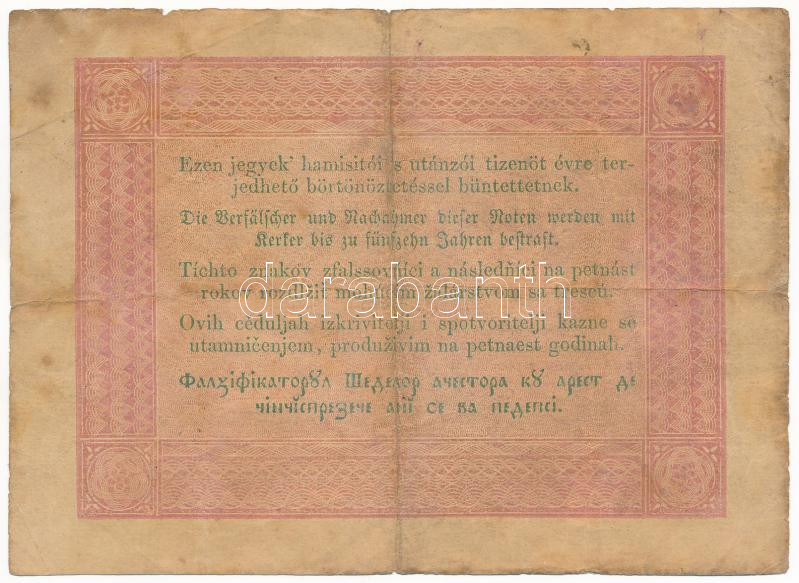 Ezen jegyek' hamisitói 's utánzói tizenöt évre ter-
jedhető börtönöztetéssel büntettetnek.
Die Verfälscher und Nachahmer dieser Noten werden mit
Kerker bis zu fünfzehn Jahren bestraft.
Tíchto znakov zfalssovníci a následňíci na petnást
rokov rozdlžiť mohúcim žalárstvom sa trescú.
darabanth
Ovih ceduljah izkrivitelji i spotvoritelji kazne se
utamničenjem, produživim na petnaest godinah.
Фалзіфікаторꙋл Шеделор ачестора кꙋ арест де
чінчіспрезече ані се ва педепсі.